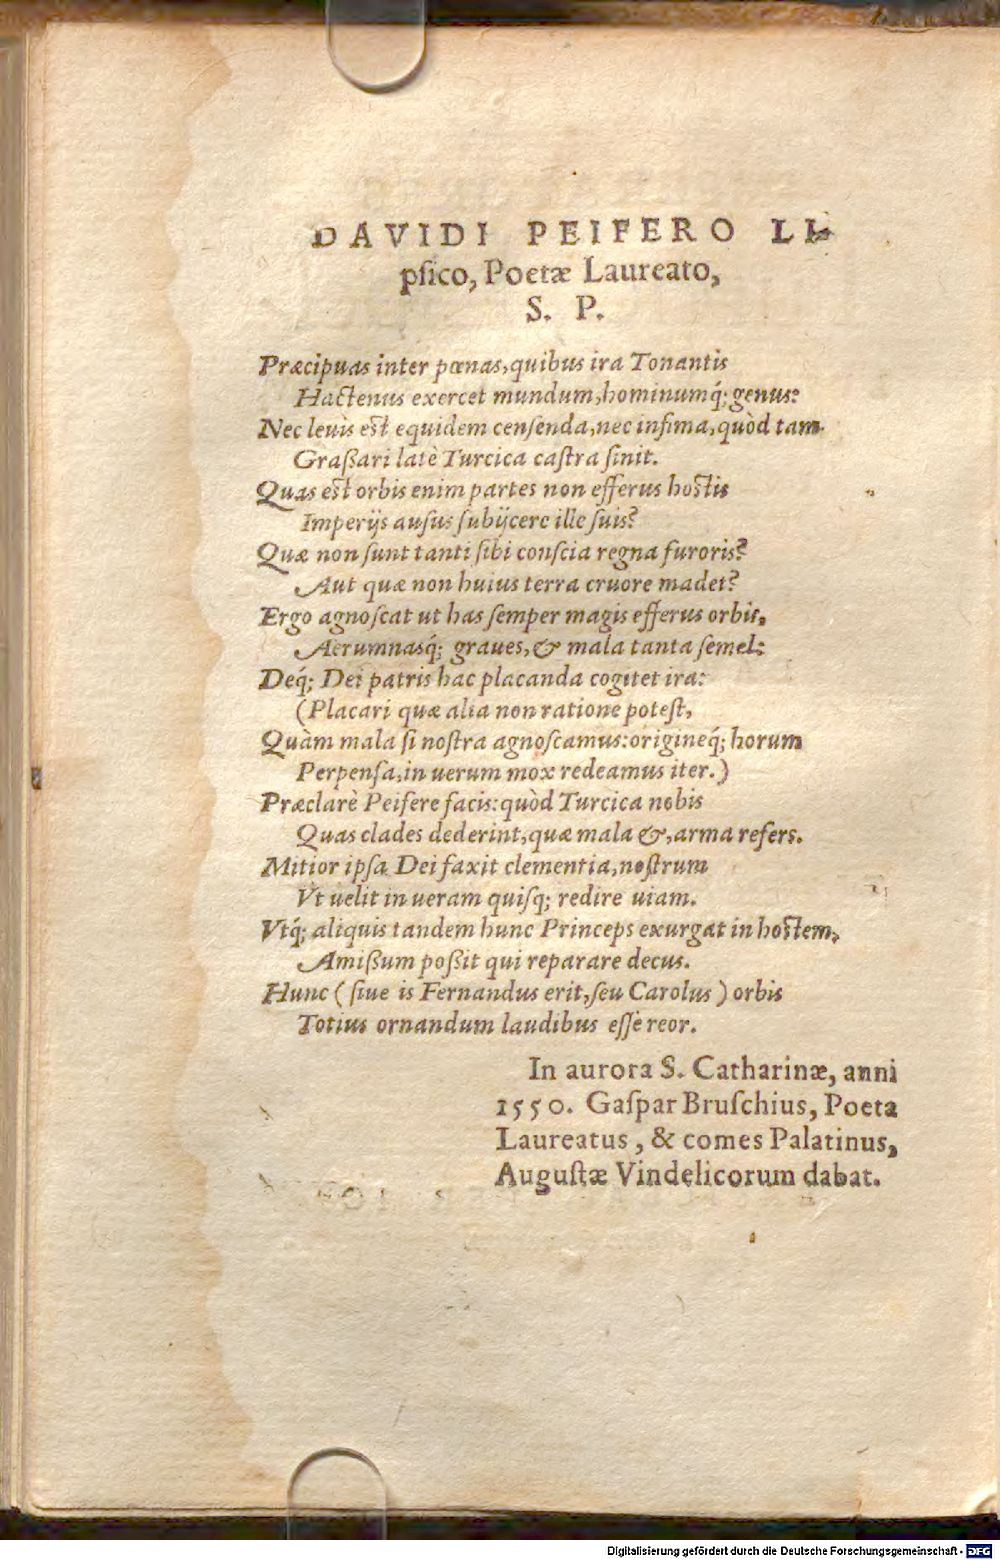 DAVIDI PEIFERO LI-
pſico, Poetæ Laureato,
S. P.
Præcipuas inter pœnas, quibus ira Tonantis
Hactenus exercet mundum, hominumq́; genus:
Nec leuis est equidem censenda, nec infima, quòd tam
Graßari latè Turcica caſtra ſinit.
Quas est orbis enim partes non efferus hostis
Imperijs auſus ſubijcere ille ſuis?
Quæ non ſunt tanti ſibi conſcia regna furoris?
Aut quæ non huius terra cruore madet?
Ergo agnoſcat ut has ſemper magis efferus orbis,
Aerumnasq́; graues, & mala tanta ſemel:
Deq́; Dei patris hac placanda cogitet ira:
(Placari quæ alia non ratione poteſt,
Quàm mala ſi noſtra agnoſcamus: origineq́; horum
Perpenſa, in uerum mox redeamus iter.)
Præclarè Peifere facis: quòd Turcica nobis
Quas clades dederint, quæ mala &, arma refers.
Mitior ipſa Dei faxit clementia, noſtrum
Vt uelit in ueram quiſq; redire uiam.
Vtq́; aliquis tandem hunc Princeps exurgat in hostem,
Amißum poßit qui reparare decus.
Hunc (ſiue is Fernandus erit, ſeu Carolus) orbis
Totius ornandum laudibus eſſe reor.
In aurora S. Catharinæ, anni
1550. Gaſpar Bruſchius, Poeta
Laureatus, & comes Palatinus,
Auguſtæ Vindelicorum dabat.
Digitalisierung gefördert durch die Deutsche Forschungsgemeinschaft - DFG